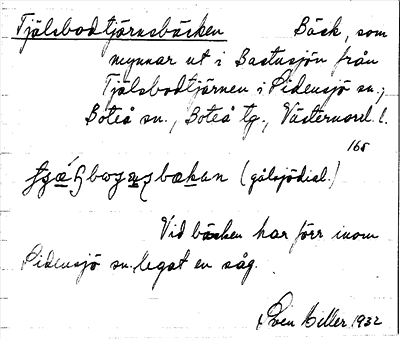 Tjälsbodtjärnsbäcken Bäck, som
mynnar ut i Bastusjön från
Tjälsbodtjärnen i Sidensjö sn.,
Boteå sn., Boteå tg., Västernorrl. l.
165
(gålsjödial.)
Vid bäcken har förr inom
Sidensjö sn. legat en såg.
Sven Hiller 1932